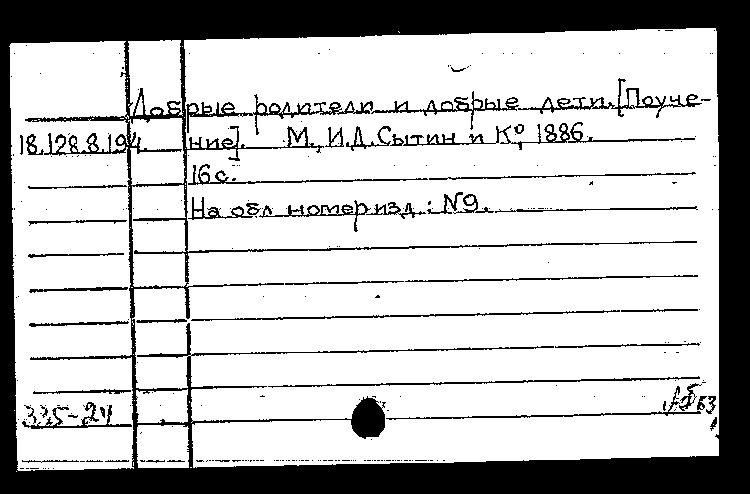 Добрые родители и добрые дети. [Поуче-
18.128.8.194. ние]. М., И.Д. Сытин и Кº, 1886.
16 с.
На обл номер изд.: N9.
335-24